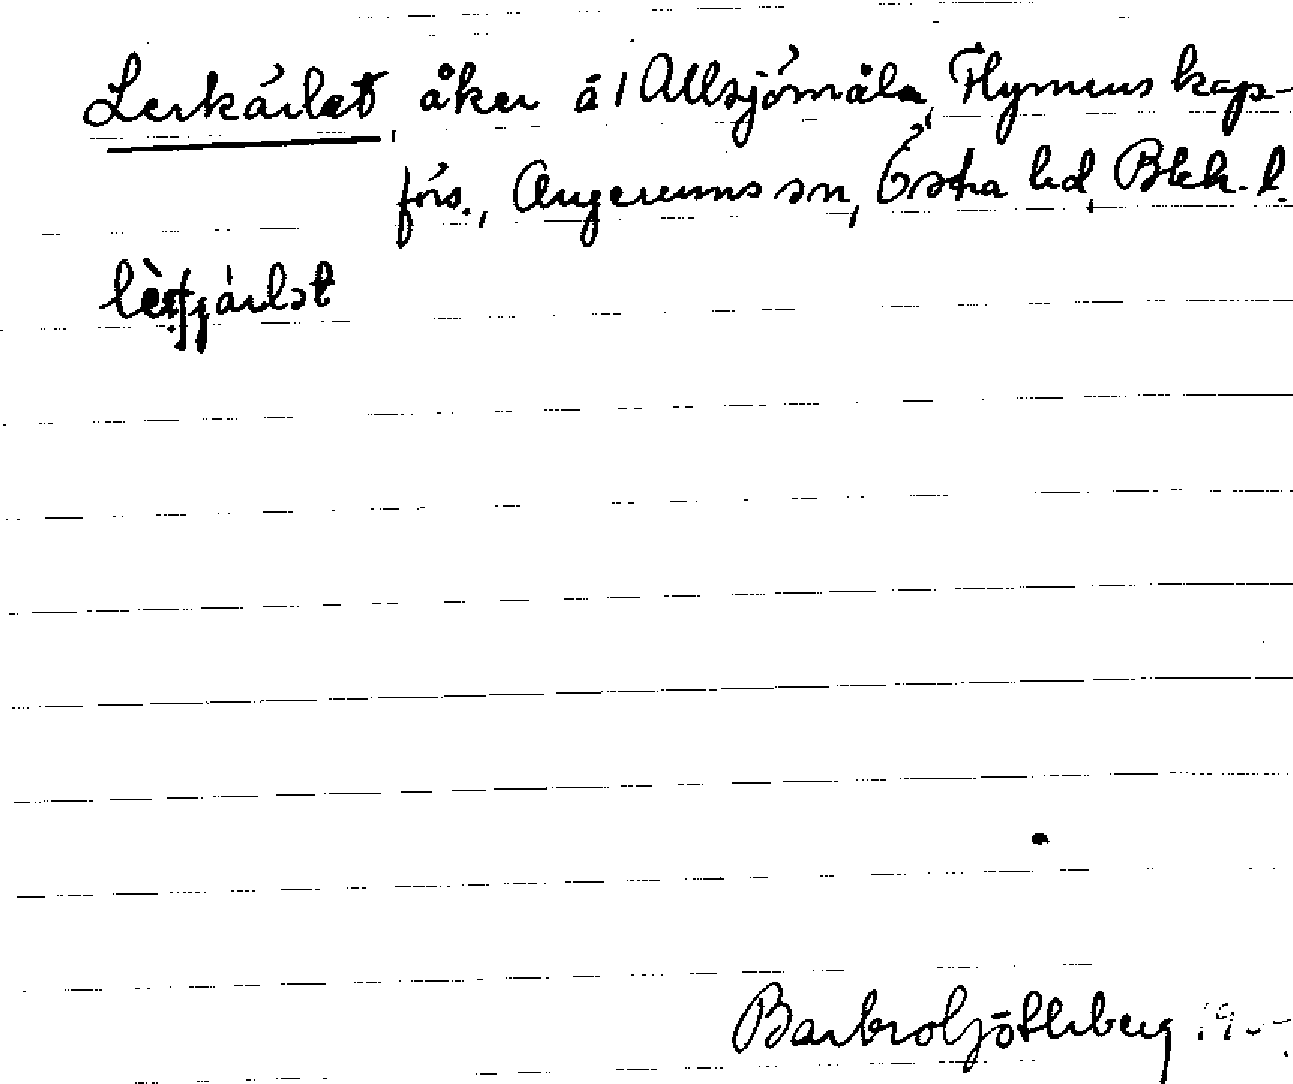 Lerkärlet, åker å 1 Allsjömåla, Flymens kap-
förs., Augerums sn, Östra hd, Blek. l.
Barbro Götlberg